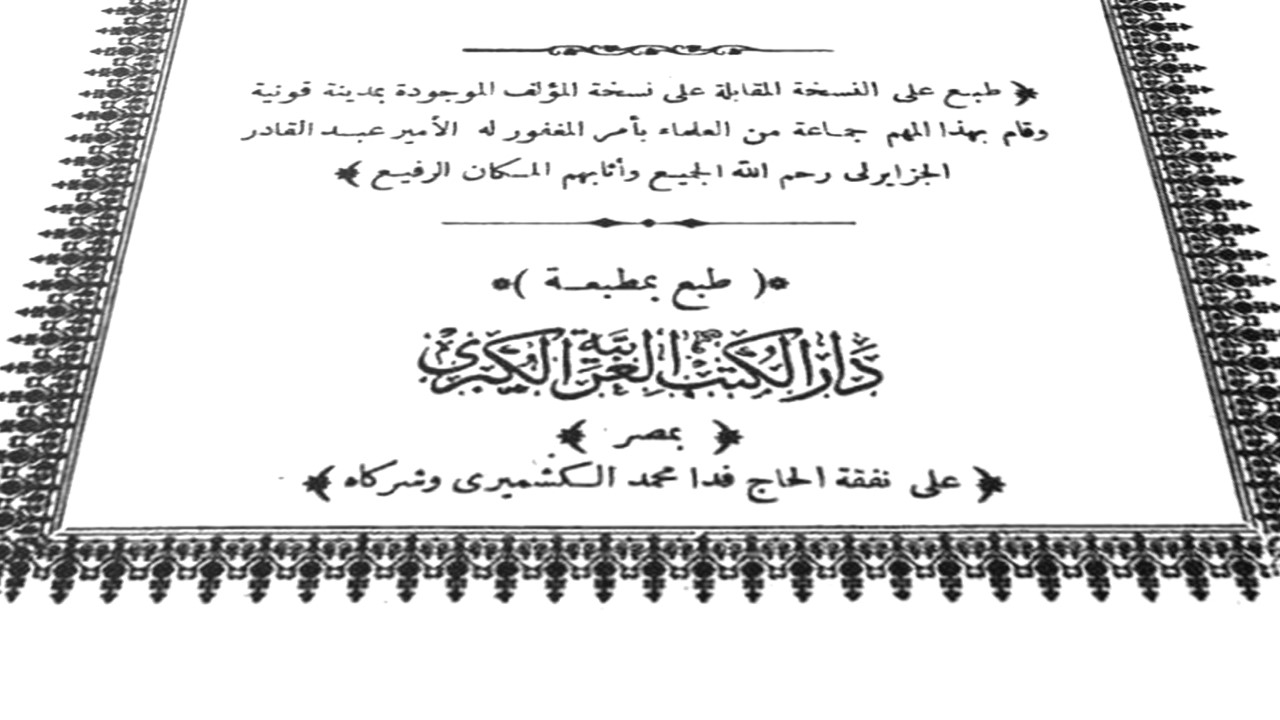 ﴿ طبع على النسخة المقابلة على نسخة المؤلف الموجودة بمدينة قونية
وقام بهذا المهم جماعة من العلماء بأمر المغفور له الأمير عبد القادر
الجزايرلى رحم الله الجميع وأثابهم المكان الرفيع ﴾
*( طبع بمطبعة )*
دَارُ الكُتُبِ العَرَبِيَّةِ الكُبْرَى
﴿ بمصر ﴾
﴿ على نفقة الحاج فدا محمد الكشميرى وشركاه ﴾